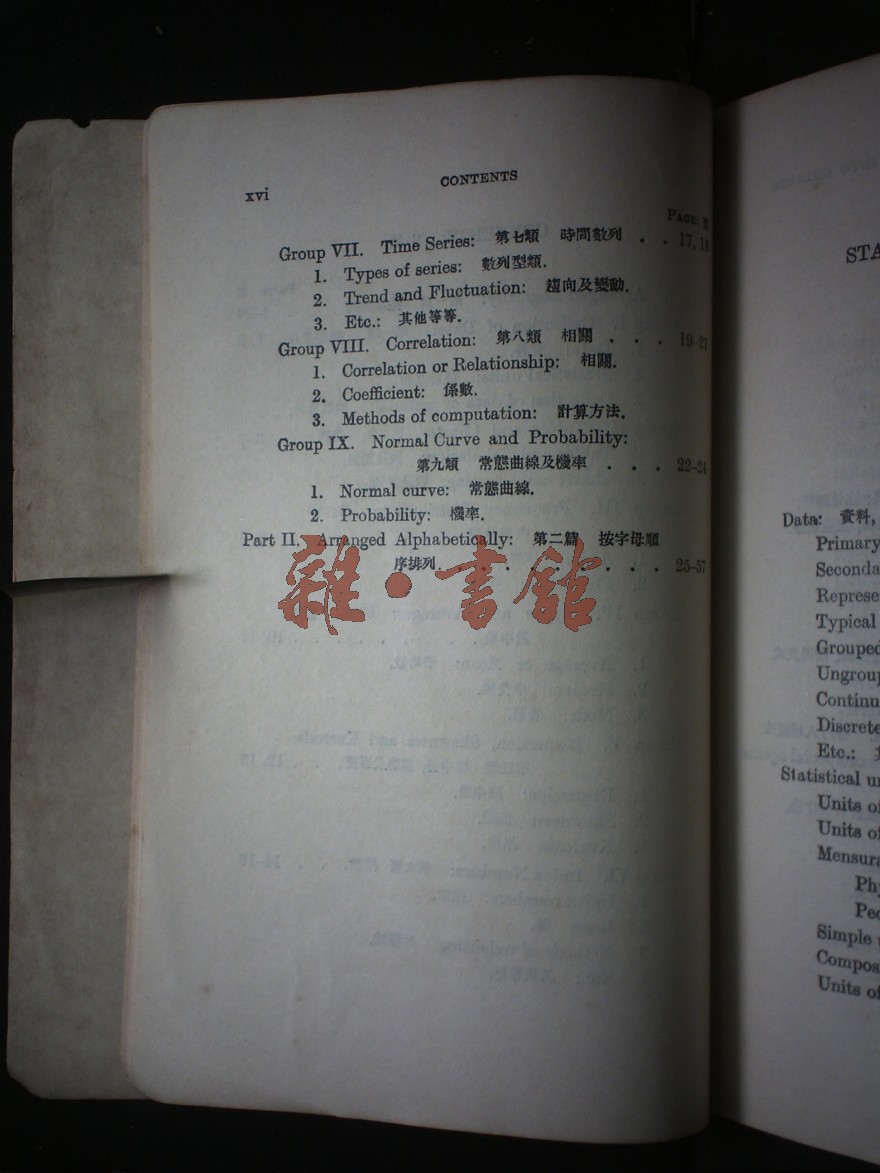 xvi
CONTENTS
PAGE
Group VII. Time Series: 第七類 時間數列 . . 17, 18
1. Types of series: 數列型類.
2. Trend and Fluctuation: 趨向及變動.
3. Etc.: 其他等等.
Group VIII. Correlation: 第八類 相關 . . . 19-21
1. Correlation or Relationship: 相關.
2. Coefficient: 係數.
3. Methods of computation: 計算方法.
Group IX. Normal Curve and Probability:
第九類 常態曲線及機率 . . . 22-24
1. Normal curve: 常態曲線.
2. Probability: 機率.
Part II. Arranged Alphabetically: 第二篇 按字母順
序排列. . . . . . . . 25-57
雜·書館
STA
Data: 資料,
Primary
Seconda
Represe
Typical
Grouped
Ungroup
Continu
Discrete
Etc.:
Statistical un
Units of
Units of
Mensura
Phy
Pec
Simple
Compos
Units of